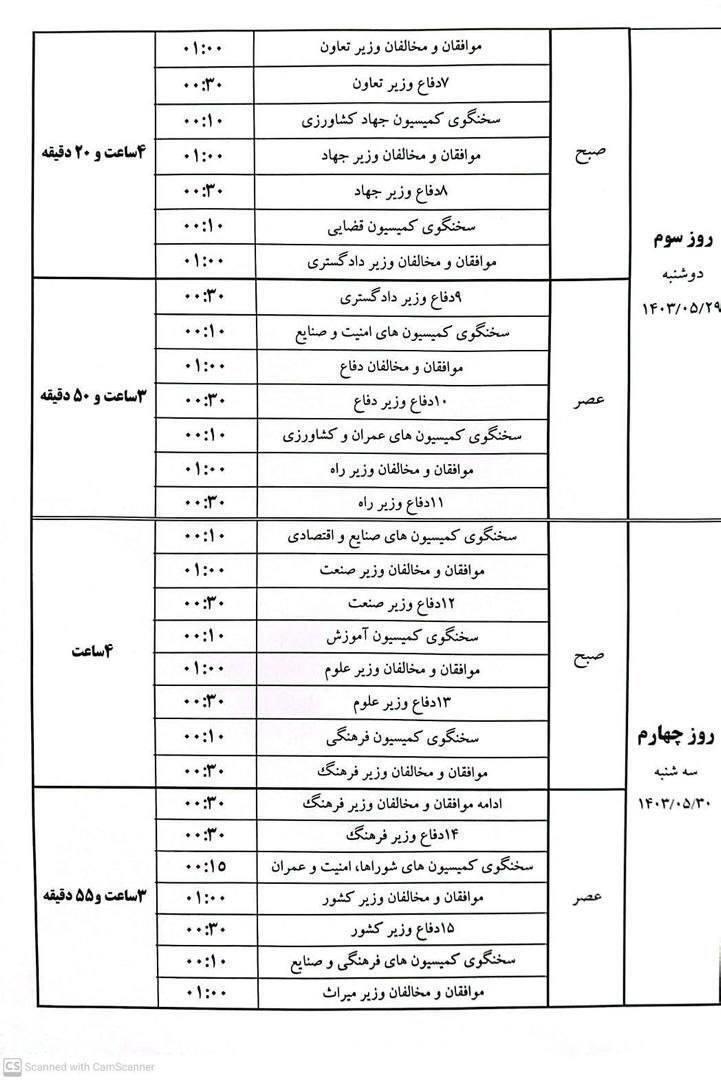 روز سوم
دوشنبه
۱۴۰۳/۰۵/۲۹
صبح
موافقان و مخالفان وزیر تعاون ۰۱:۰۰
۷دفاع وزیر تعاون ۰۰:۳۰
سخنگوی کمیسیون جهاد کشاورزی ۰۰:۱۰
موافقان و مخالفان وزیر جهاد ۰۱:۰۰
۸دفاع وزیر جهاد ۰۰:۳۰
سخنگوی کمیسیون قضایی ۰۰:۱۰
موافقان و مخالفان وزیر دادگستری ۰۱:۰۰
۴ساعت و ۲۰ دقیقه
عصر
۹دفاع وزیر دادگستری ۰۰:۳۰
سخنگوی کمیسیون های امنیت و صنایع ۰۰:۱۰
موافقان و مخالفان دفاع ۰۱:۰۰
۱۰دفاع وزیر دفاع ۰۰:۳۰
سخنگوی کمیسیون های عمران و کشاورزی ۰۰:۱۰
موافقان و مخالفان وزیر راه ۰۱:۰۰
۱۱دفاع وزیر راه ۰۰:۳۰
۳ساعت و ۵۰ دقیقه
روز چهارم
سه شنبه
۱۴۰۳/۰۵/۳۰
صبح
سخنگوی کمیسیون های صنایع و اقتصادی ۰۰:۱۰
موافقان و مخالفان وزیر صنعت ۰۱:۰۰
۱۲دفاع وزیر صنعت ۰۰:۳۰
سخنگوی کمیسیون آموزش ۰۰:۱۰
موافقان و مخالفان وزیر علوم ۰۱:۰۰
۱۳دفاع وزیر علوم ۰۰:۳۰
سخنگوی کمیسیون فرهنگی ۰۰:۱۰
موافقان و مخالفان وزیر فرهنگ ۰۰:۳۰
۴ساعت
عصر
ادامه موافقان و مخالفان وزیر فرهنگ ۰۰:۳۰
۱۴دفاع وزیر فرهنگ ۰۰:۳۰
سخنگوی کمیسیون های شوراها، امنیت و عمران ۰۰:۱۵
موافقان و مخالفان وزیر کشور ۰۱:۰۰
۱۵دفاع وزیر کشور ۰۰:۳۰
سخنگوی کمیسیون های فرهنگی و صنایع ۰۰:۱۰
موافقان و مخالفان وزیر میراث ۰۱:۰۰
۳ساعت و۵۵ دقیقه
CS Scanned with CamScanner